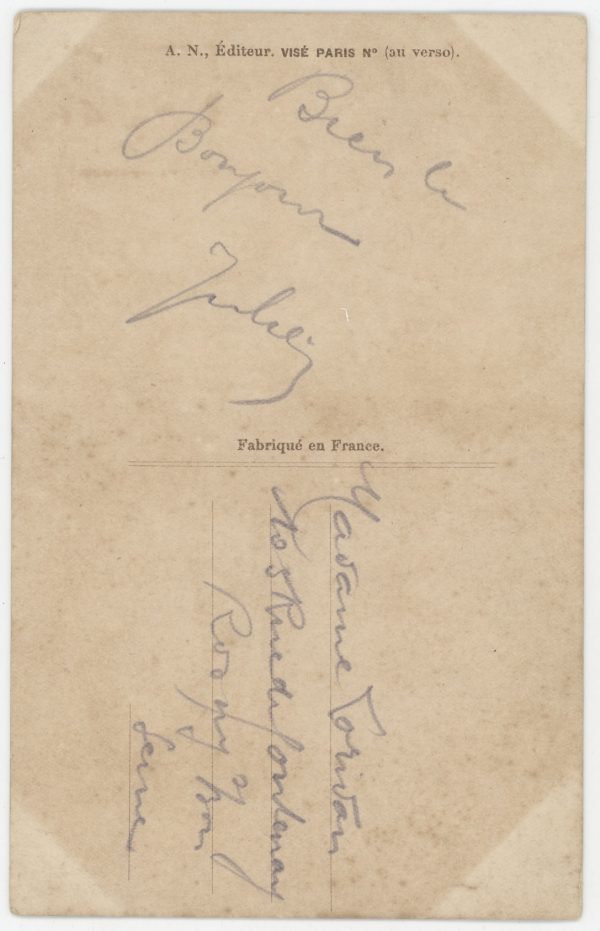 A. N., Éditeur. VISÉ PARIS N° (au verso).
Bien le
Bonjour
Fabriqué en France.
Madame
Rue de Fontenay
Rosny s/ Bois
Seine